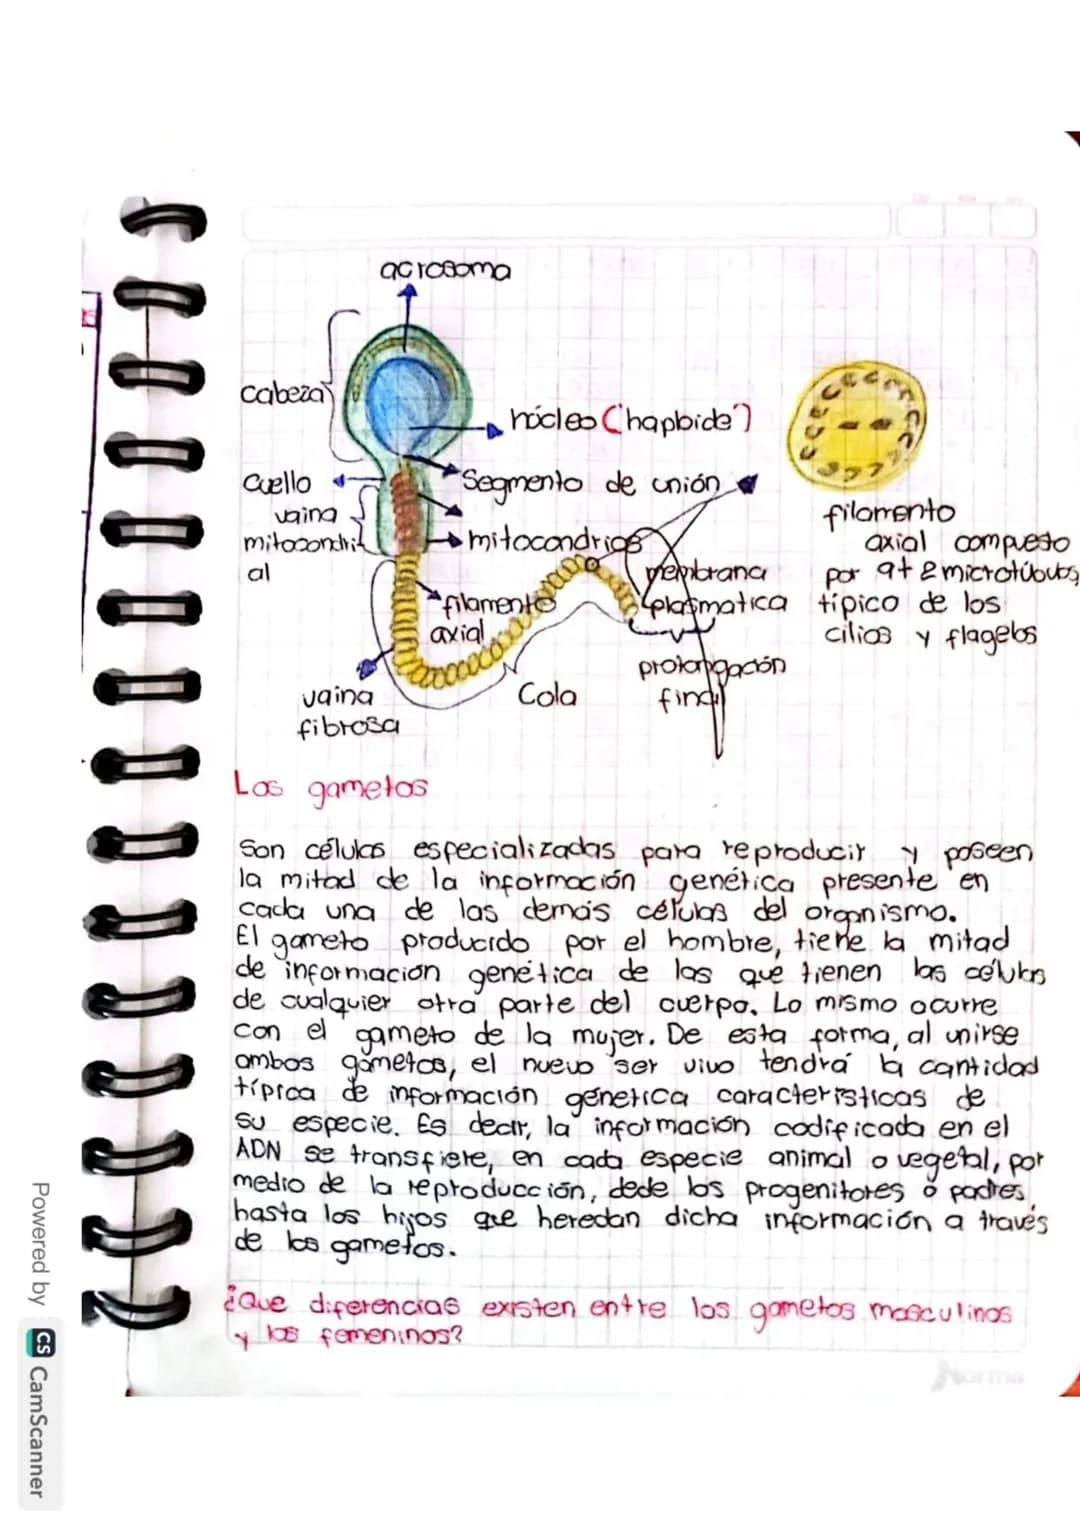 acrosoma
cabeza
núcleo ("haploide")
Cuello
Segmento de unión
vaina
mitocondri
al
mitocondrias
filamento
axial compuesto
por 9+2 microtúbulos,
típico de los
cilios y flagelos
membrana
plasmatica
filamento
axial
prolongación
final
vaina
fibrosa
Cola
Los gametos
Son células especializadas para reproducir y poseen
la mitad de la información genética presente en
cada una de las demás células del organismo.
El gameto producido por el hombre, tiene la mitad
de información genética de las que tienen las células
de cualquier otra parte del cuerpo. Lo mismo ocurre
con el gameto de la mujer. De esta forma, al unirse
ambos gametos, el nuevo ser vivo tendrá la cantidad
típica de información genetica caracteristicas de
su especie. Es decir, la información codificada en el
ADN se transfiere, en cada especie animal o vegetal, por
medio de la reproducción, dede los progenitores o padres
hasta los hijos que heredan dicha información a través
de los gametos.
¿Que diferencias existen entre los gametos masculinos
y los femeninos?
Norma
Powered by CS CamScanner